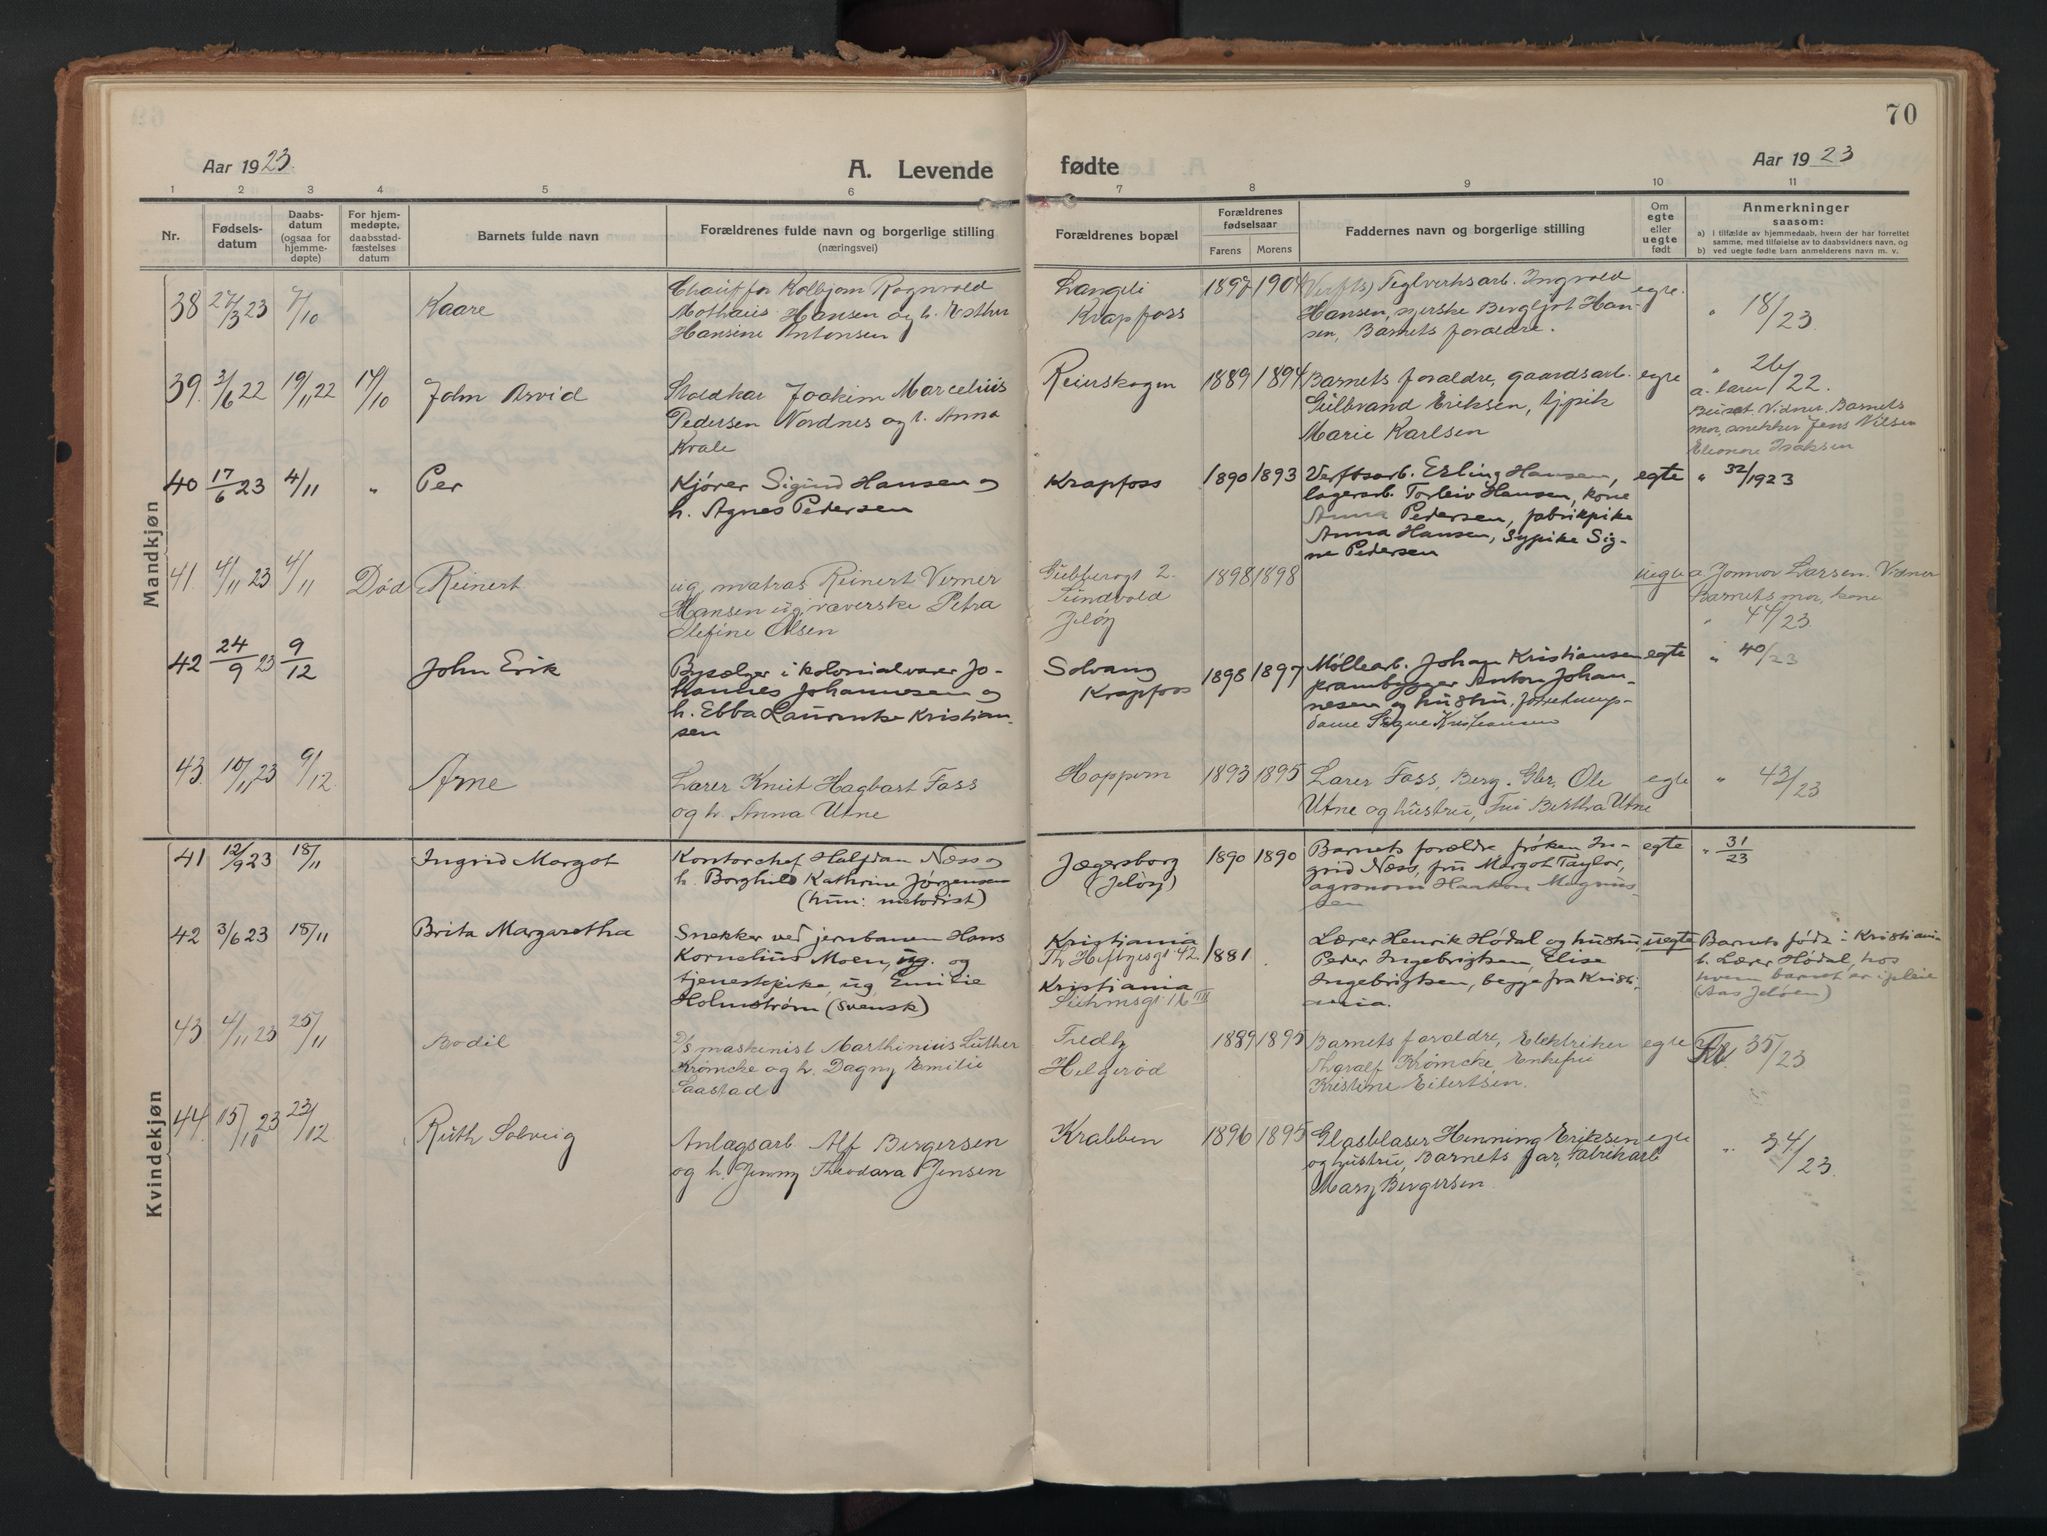 70
Aar 1923
A. Levende
fødte
Aar 1923
1 2 3 4 5 6 7 8 9 10 11
Nr.
Fødsels-
datum
Daabs-
datum
(ogsaa for
hjemme-
døpte)
For hjem-
medøpte,
daabsstad-
fæstelses
datum
Barnets fulde navn
Forældrenes fulde navn og borgerlige stilling
(næringsvei)
Forældrenes bopæl
Forældrenes
fødselsaar
Farens Morens
Faddernes navn og borgerlige stilling
Om
egte
eller
uegte
født
Anmerkninger
saasom:
a) i tilfælde av hjemmedaab, hvem der har forrettet
samme, med tilføielse av to daabsvidners navn, og
b) ved uegte fødte barn anmelderens navn m. v.
Mandkjøn
38 27/3 23 7/10 Kaare
Chauffør Kolbjørn Ragnvald
Mathæus Hansen og h. Esther
Hansine Antonsen
Langli
Krapfoss
1897 1904
(Verfts) Teglverksarb. Ingvald
Hansen, syerske Bergljot Han-
sen, Barnets forældre.
egte.
" 18/23
39. 3/6 22 19/11 22 14/10 John Arvid
Staldkar Joakim Marcelius
Pedersen Nordnes og h. Anna
Kvale
Reierskogen
1889 1894
Barnets forældre, gaardsarb.
Gulbrand Eriksen, tjpik
Marie Karlsen
egte
" 26/22.
a. lærer
Vidner, Barnets
mor, snekker Jens Nilsen
Eleonore Isaksen
40 17/6 23 4/11 " Per
Kjører Sigurd Hansen og
h. Agnes Pedersen
Krapfoss
1890 1893
Verftsarb. Erling Hansen,
lagerarb. Torleiv Hansen, kone
Anna Pedersen, fabrikpike
Anna Hansen, sypike Sig-
ne Pedersen
egte
" 32/1923
41 4/11 23 4/11 Død Reinert
ug. matros Reinert Verner
Hansen ug. væverske Petra
Stefine Olsen
Gubberogt 2.
Sundvold
Jeløy
1898 1898
uegte
a. Jormor Larsen. Vidner
Barnets mor, kone
" 44/23.
42 24/9 23 9/12 John Erik
Bysælger i kolonialvarer Jo-
hannes Johannesen og
h. Ebba Laurentse Kristian-
sen
Solvang
Krapfoss
1898 1897
Møllearb. Johan Kristiansen
prambygger Anton Johan-
nesen og hustru, forretnings-
dame Signe Kristiansen
egte
" 40/23
43. 10/11 23 9/12 Arne
Lærer Knut Hagbart Fass
og h. Anna Utne
Hoppern
1893 1895
Lærer Fass, Berg. Gbr. Ole
Utne og hustru, Fru Bertha Utne
egte
" 43/23
Kvindekjøn
41 12/9 23 18/11 Ingrid Margot
Kontorchef Halfdan Næss og
h. Borghild Kathrine Jørgensen
(hun: metodist)
Jægersborg
(Jeløy)
1890 1890
Barnets forældre, frøken In-
grid Næss, fru Margot Taylor,
agronom Haakon Magnus-
sen
egte
" 31/23
42 3/6 23 18/11 Brita Margaretha
Snekker ved jernbanen Hans
Kornelius Moen, ug. og
tjenestepike ug Emilie
Holmstrøm (svensk)
Kristiania
Th Heftyesgt 42.
Kristiania
Suhmsgt 16 III
1881
Lærer Henrik Hødal og hustru,
Peder Ingebrigtsen, Elise
Ingebrigtsen, begge fra Kristi-
ania.
uegte
Barnets født i Kristiania
b. Lærer Hødal, hos
hvem barnet er i pleie
(Aas Jeløen)
43 4/11 23 25/11 Bodil
D/s maskinist Marthinius Luther
Krømcke og h. Dagny Emilie
Saastad
Fredly
Helgerød
1889 1895
Barnets forældre, Elektriker
Thoralf Krømcke, Enkefru
Kristine Eilertsen.
egte
35/23
44. 15/10 23 23/12 Ruth Solveig
Anlægsarb. Alf Bergersen
og h. Jenny Theodora Jensen
Krabben
1896 1895
Glasblaser Henning Eriksen
og hustru, Barnets far, fabrikarb
Mary Bergersen.
egte
" 34/23.